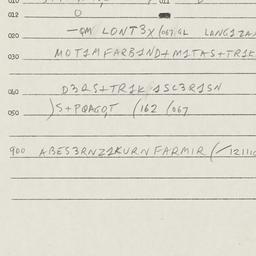 012 O
020 -QM LONT3X (067.GL LANG1ZAN
030 MOT1MFARB1ND+M1TAS+TR1K
040 D3RS+TR1K 1SC3R1SN
050 )S+PQAGQT (162 (067
900 ABES3RNZ1KURNFARMIR (/121110